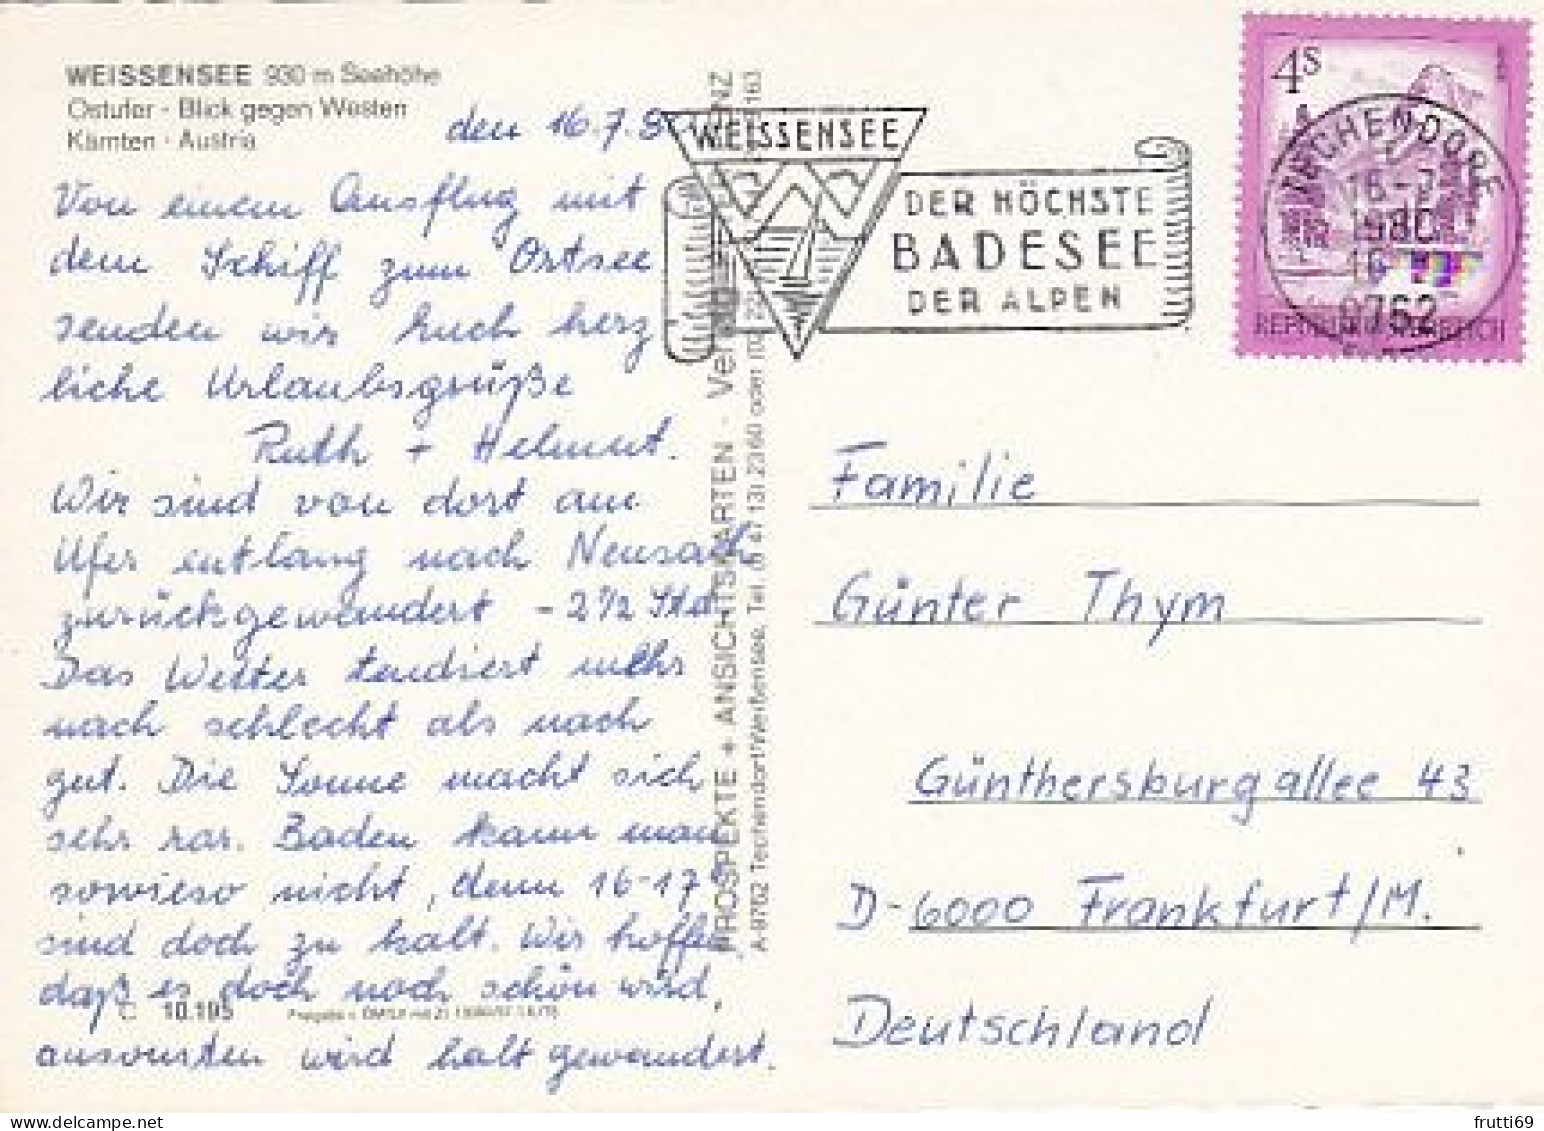 WEISSENSEE 930 m Seehöhe
Ostufer - Blick gegen Westen
Kärnten - Austria
den 16.7.8
Von einem Ausflug mit
dem Schiff zum Ortsee
senden wir Euch herz
liche Urlaubsgrüße
Ruth + Helmut.
Wir sind von dort am
Ufer entlang nach Neusach
zurückgewandert - 2 1/2 Std.
Das Wetter tendiert mehr
nach schlecht als nach
gut. Die Sonne macht sich
sehr rar. Baden kann man
sowieso nicht, denn 16-17°
sind doch zu kalt. Wir hoffen
daß es doch noch schön wird,
ansonsten wird halt gewandert.
C 10.195
PROSPEKTE + ANSICHTSKARTEN - Verlag
A-9762 Techendorf/Weißensee, Tel. (0 47 13) 23 60 oder
WEISSENSEE
DER HÖCHSTE
BADESEE
DER ALPEN
4S
REPUBLIK ÖSTERREICH
TECHENDORF
16.-7.
1980
9762
Familie
Günter Thym
Günthersburgallee 43
D-6000 Frankfurt/M.
Deutschland
frutti69